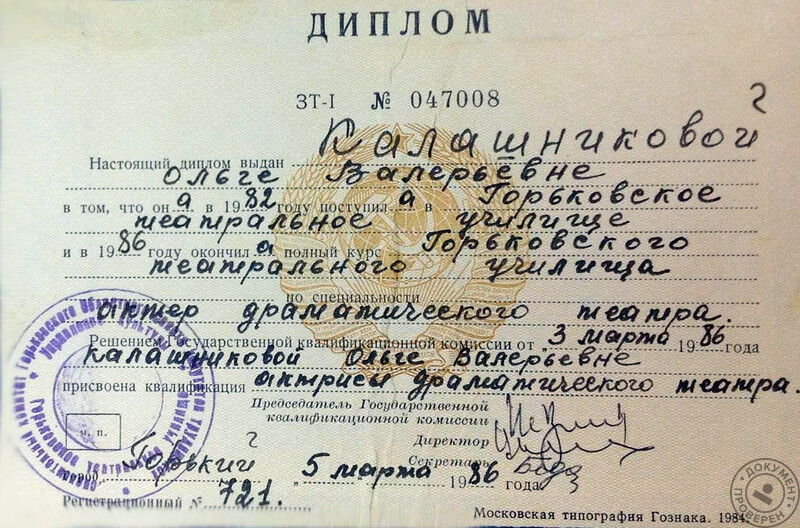 ДИПЛОМ
ЗТ-I № 047008
Настоящий диплом выдан Калашниковой
Ольге Валерьевне
в том, что он а в 1982 году поступил а в Горьковское
театральное училище
и в 1986 году окончил а полный курс Горьковского
театрального училища
по специальности
актер драматического театра.
Решением Государственной квалификационной комиссии от 3 марта 1986 года
Калашниковой Ольге Валерьевне
присвоена квалификация актрисы драматического театра.
Председатель Государственной
квалификационной комиссии
Директор
Секретарь
М. П.
Город Горький 5 марта 1986 года
Регистрационный № 721.
Московская типография Гознака. 1984.
ДОКУМЕНТ ПРОВЕРЕН